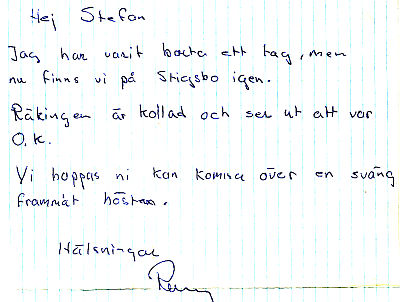 Hej Stefan
Jag har varit borta ett tag, men
nu finns vi på Stigsbo igen.
Räkingen är kollad och ser ut att var
O.K.
Vi hoppas ni kan komma över en sväng
frammåt hösten.
Hälsningar